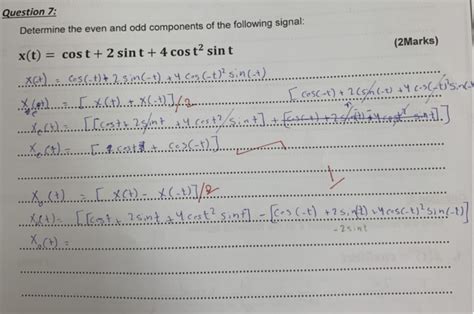 Question 7:
Determine the even and odd components of the following signal:
x(t) = cos t + 2 sin t + 4 cos t² sin t
(2Marks)
x(-t) = cos(-t) + 2 sin(-t) + 4 cos(-t)² sin(-t)
Xe(t) = [ x(t) + x(-t) ]/2
[ cos(-t) + 2(sin(-t) + 4 cos(-t)² sin(-t)
Xe(t) = [[cost + 2sint + 4 cost² sint] + [cos(-t) + 2 sin(-t) + 4 cost² sint]]
Xe(t) = [ cost + cos(-t) ]
1
Xo(t) = [ x(t) - x(-t) ]/2
Xo(t) = [[cost + 2sint + 4 cost² sint] - [cos(-t) + 2 sin(-t) + 4 cos(-t)² sin(-t)]
-2 sint
Xo(t) =